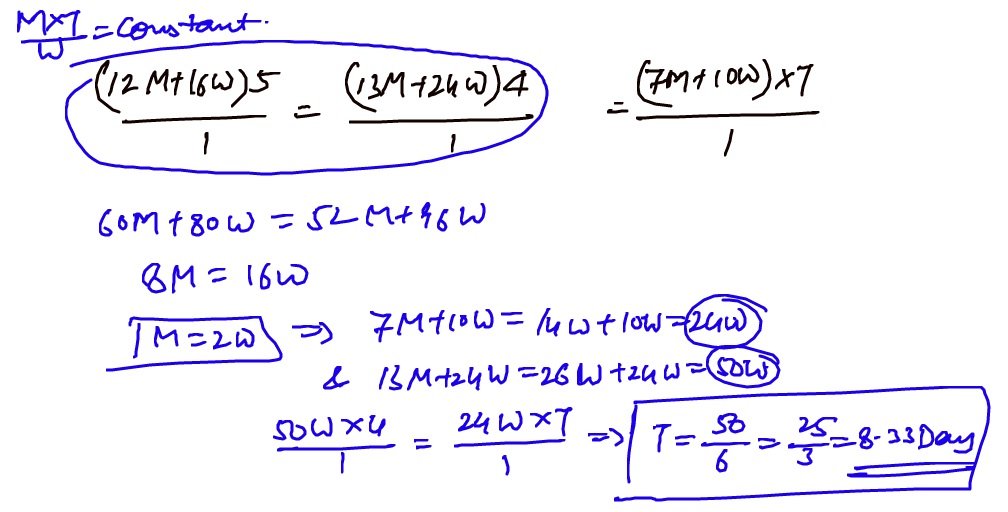 M×T/W = Constant.
(12M+16W)5/1 = (13M+24W)4/1 = (7M+10W)×T/1
60M+80W = 52M+96W
8M = 16W
1M=2W ⇒ 7M+10W = 14W+10W=24W
& 13M+24W=26W+24W=50W
50W×4/1 = 24W×T/1 ⇒ T = 50/6 = 25/3 = 8.33Day